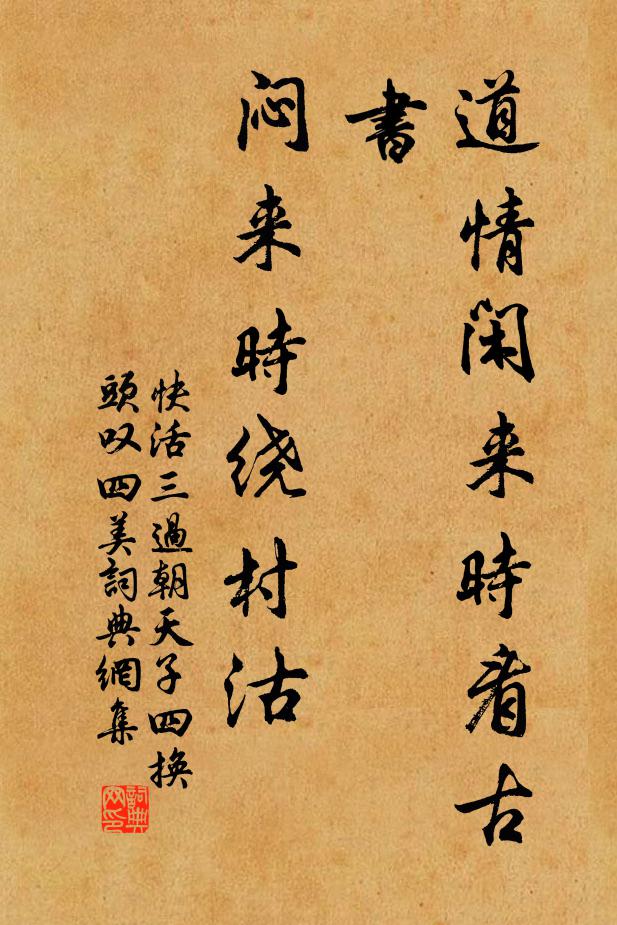 道情閑来時看古
書
闷来時绕村沽
快活三過朝天子四換
頭叹四美詞典網集
詞典
网印